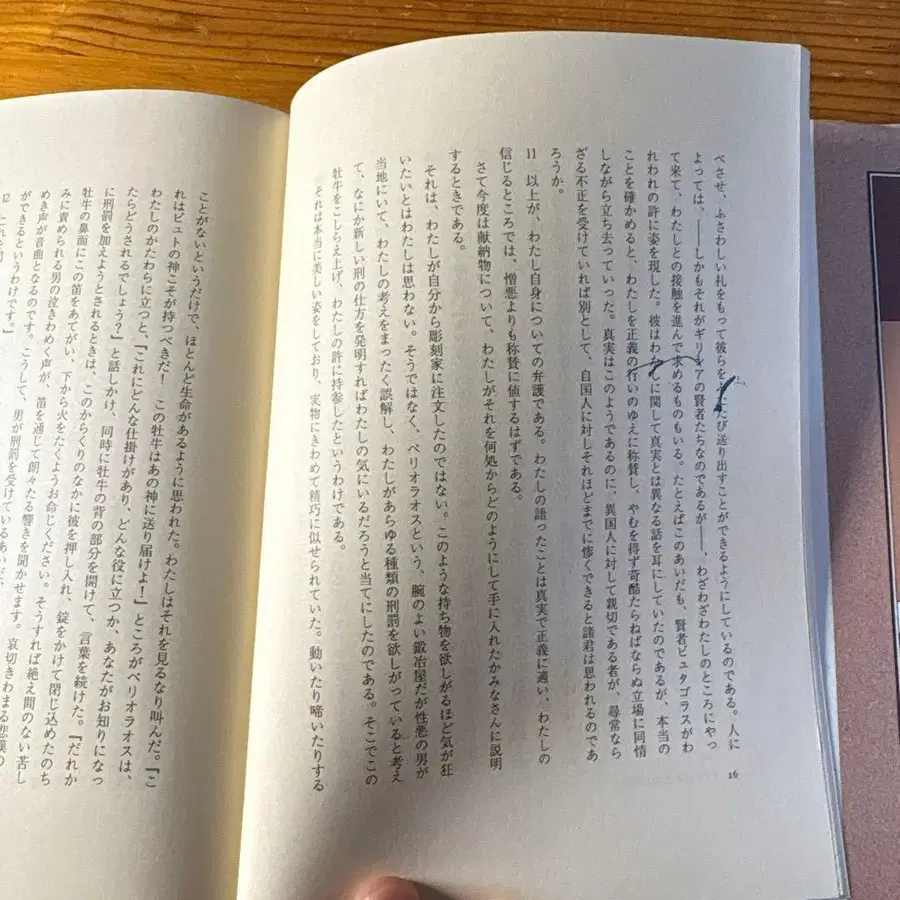 べさせ、ふさわしい礼をもって彼らを たび送り出すことができるようにしているのである。人に
よっては、——しかもそれがギリシアの賢者たちなのであるが——、わざわざわたしのところにやっ
て来て、わたしとの接触を進んで求めるものもいる。たとえばこのあいだも、賢者ピュタゴラスがわ
れわれの許に姿を現した。彼はわたしに関して真実とは異なる話を耳にしていたのであるが、本当の
ことを確かめると、わたしを正義の行いのゆえに称賛し、やむを得ず苛酷たらねばならぬ立場に同情
しながら立ち去っていった。真実はこのようであるのに、異国人に対して親切である者が、尋常なら
ざる不正を受けていれば別として、自国人に対しそれほどまでに惨くできると諸君は思われるのであ
ろうか。
11 以上が、わたし自身についての弁護である。わたしの語ったことは真実で正義に適い、わたしの
信じるところでは、憎悪よりも称賛に値するはずである。
さて今度は献納物について、わたしがそれを何処からどのようにして手に入れたかみなさんに説明
するときである。
それは、わたしが自分から彫刻家に注文したのではない。このような持ち物を欲しがるほど気が狂
いたいとはわたしは思わない。そうではなく、ペリオラオスという、腕のよい鍛冶屋だが性悪の男が
当地にいて、わたしの考えをまったく誤解し、わたしがあらゆる種類の刑罰を欲しがっていると考え
て、なにか新しい刑の仕方を発明すればわたしの気にいるだろうと当てにしたのである。そこでこの
牡牛をこしらえ上げ、わたしの許に持参したというわけである。
それは本当に美しい姿をしており、実物にきわめて精巧に似せられていた。動いたり啼いたりする
16
ことがないというだけで、ほとんど生命があるように思われた。わたしはそれを見るなり叫んだ。「こ
れはピュトの神こそが持つべきだ! この牡牛はあの神に送り届けよ!」ところがペリオラオスは、
わたしのかたわらに立つと、「これにどんな仕掛けがあり、どんな役に立つか、あなたがお知りになっ
たらどうされるでしょう?」と話しかけ、同時に牡牛の背の部分を開けて、言葉を続けた。「だれか
に刑罰を加えようとされるときは、このからくりのなかに彼を押し入れ、錠をかけて閉じ込めたのち
牡牛の鼻面にこの笛をあてがい、下から火をたくようお命じください。そうすれば絶え間のない苦し
みに責められる男の泣きわめく声が、笛を通じて朗々たる響きを聞かせます。哀切きわまる悲嘆の
めき声が音曲となるのです。こうして、男が刑罰を受けているあいだ、
ができるというわけです。」
12